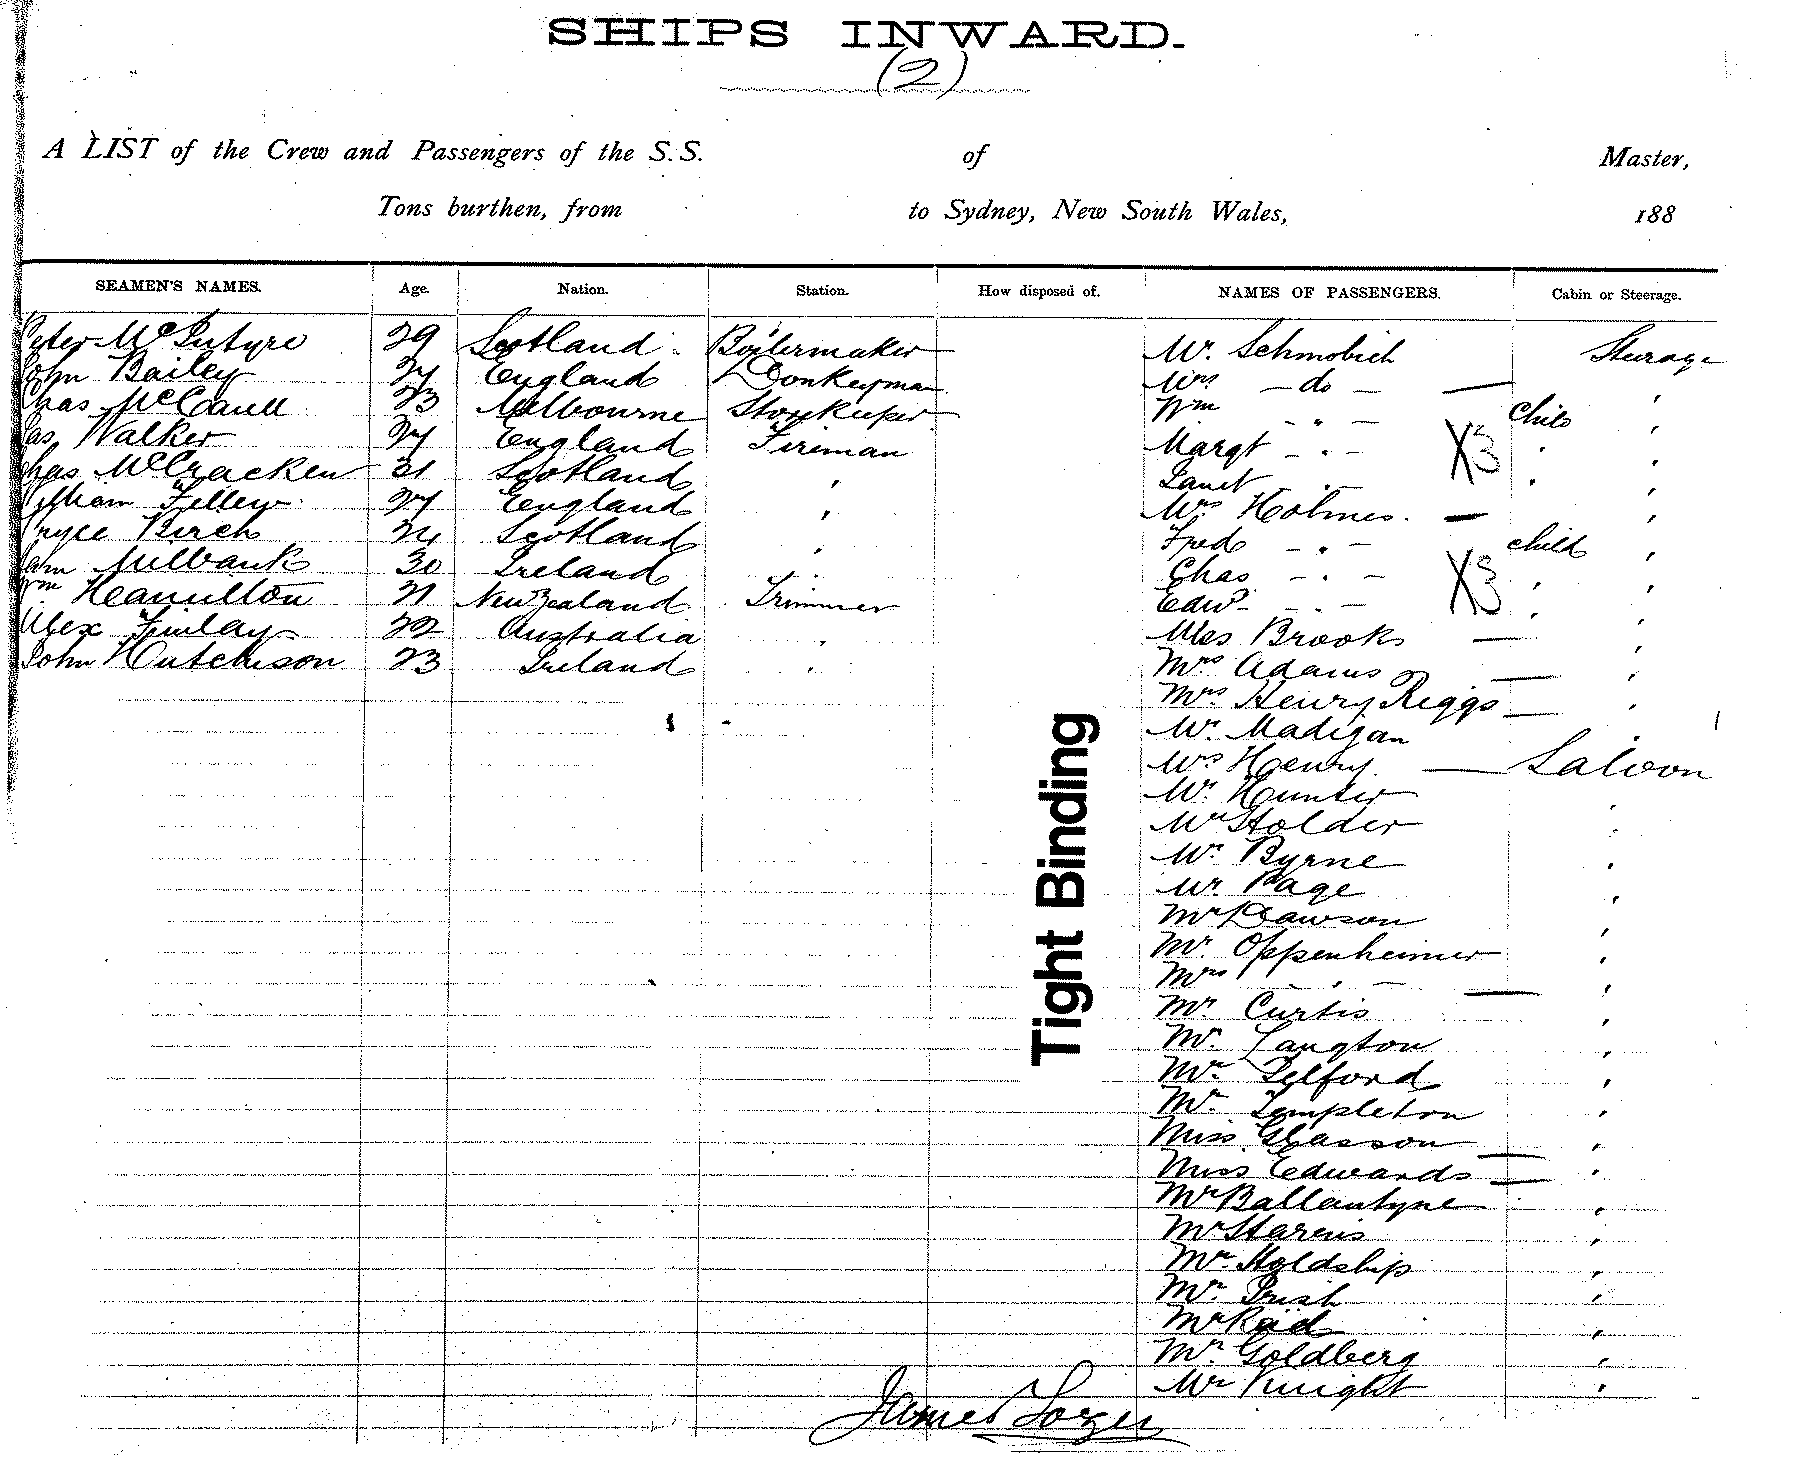 SHIPS INWARD.
(2)
A LIST of the Crew and Passengers of the S.S. of Master,
Tons burthen, from to Sydney, New South Wales, 188
SEAMEN'S NAMES. Age. Nation. Station. How disposed of. NAMES OF PASSENGERS. Cabin or Steerage.
Peter McIntyre 29 Scotland Boilermaker Mr. Schmobich Sturage
John Bailey England Donkeyman Mrs - do -
Chas McCaull 23 Melbourne Storekeeper Wm - " - Child "
Jas Walker England Fireman Margt - " - X3 " "
Chas McCracken 31 Scotland " Janet " - " "
William Filley England " Mrs Holmes. "
Bryce Birch 24 Scotland " Fred - " - child "
Sam Milbank 30 Ireland Chas - " - X3 " "
Wm Hamilton 21 New Zealand Trimmer Edwd - " - " "
Alex Finlay 22 Australia " Miss Brooks "
John Hutchison 23 Ireland " Mrs Adams "
Mrs Henry Riggs "
Mr. Madigan
Mrs Henry. Saloon
Mr. Hunter "
Mr Holder "
Mr. Byrne "
Mr Page "
Mr Dawson "
Mr. Oppenheimer "
Mrs " - "
Mr Curtis "
Mr. Langton "
Mr. Telford "
Mr. Templeton "
Miss Glasson "
Miss Edwards "
Mr Ballantyne "
Mr "
Mr. Holdship "
Mr. "
Mr Reid "
Mr. Goldberg "
Mr Knight "
James
Tight Binding